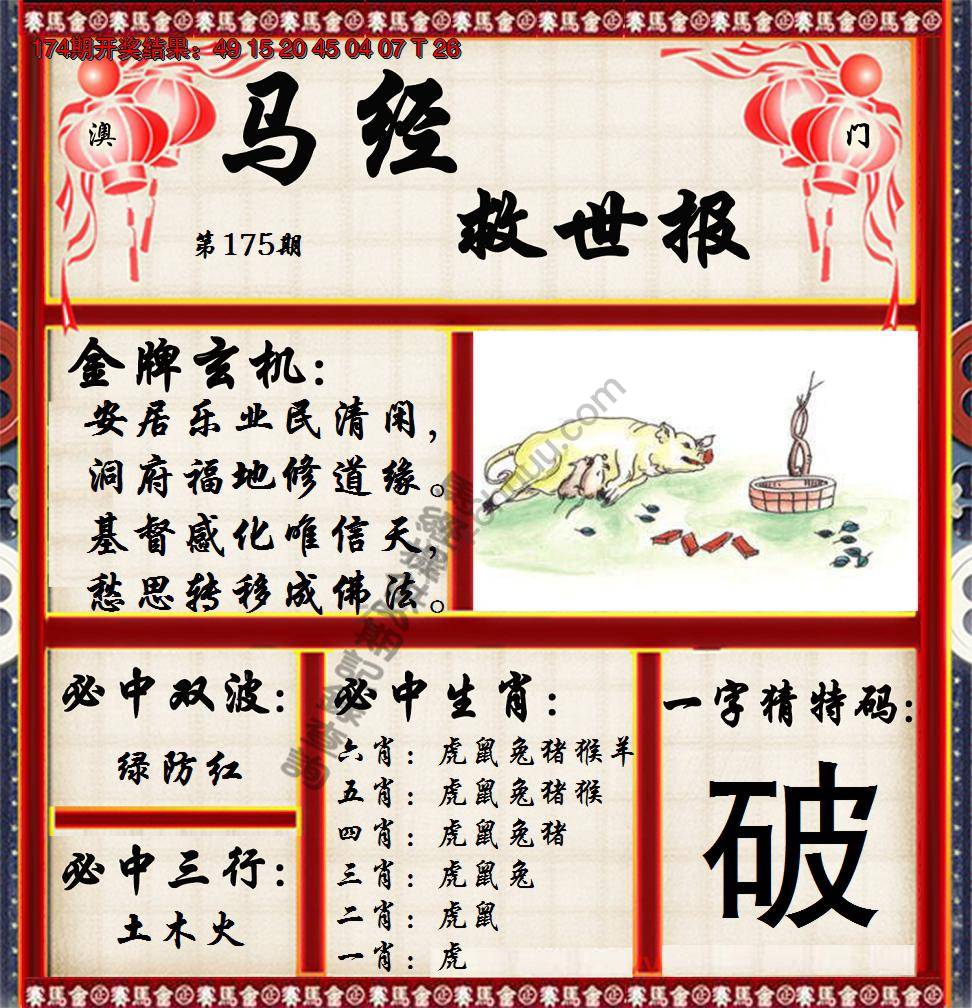 174期开奖结果：49 15 20 45 04 07 T 26
澳
门
马经
救世报
第175期
金牌玄机：
安居乐业民清闲，
洞府福地修道缘。
基督感化唯信天，
愁思转移成佛法。
必中双波：
绿防红
必中三行：
土木火
必中生肖：
六肖：虎鼠兔猪猴羊
五肖：虎鼠兔猪猴
四肖：虎鼠兔猪
三肖：虎鼠兔
二肖：虎鼠
一肖：虎
一字猜特码：
破